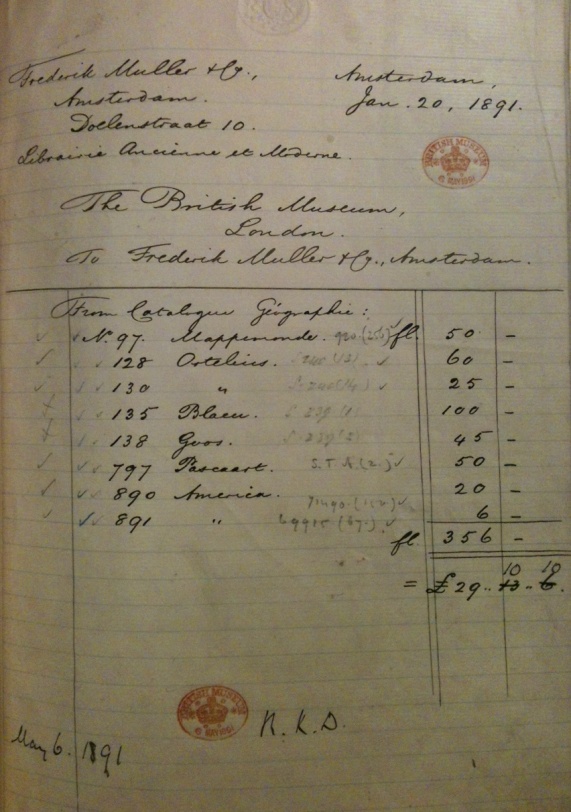 Frederik Muller & Co., Amsterdam,
Amsterdam. Jan. 20, 1891.
Doelenstraat 10.
Librairie Ancienne et Moderne.
BRITISH MUSEUM
The British Museum,
London.
To Frederik Muller & Co., Amsterdam.
From Catalogue Géographie:
No. 97. Mappemonde. fl. 50 -
128 Ortelius. 60 -
130 " 25 -
135 Blaeu. 100 -
138 Goos. 45 -
797 Pascaart. 50 -
890 America. 20 -
891 " 6 -
fl. 356 -
10 10
= £29.. 13.. 6.
BRITISH MUSEUM
R.K.D.
May 6. 1891